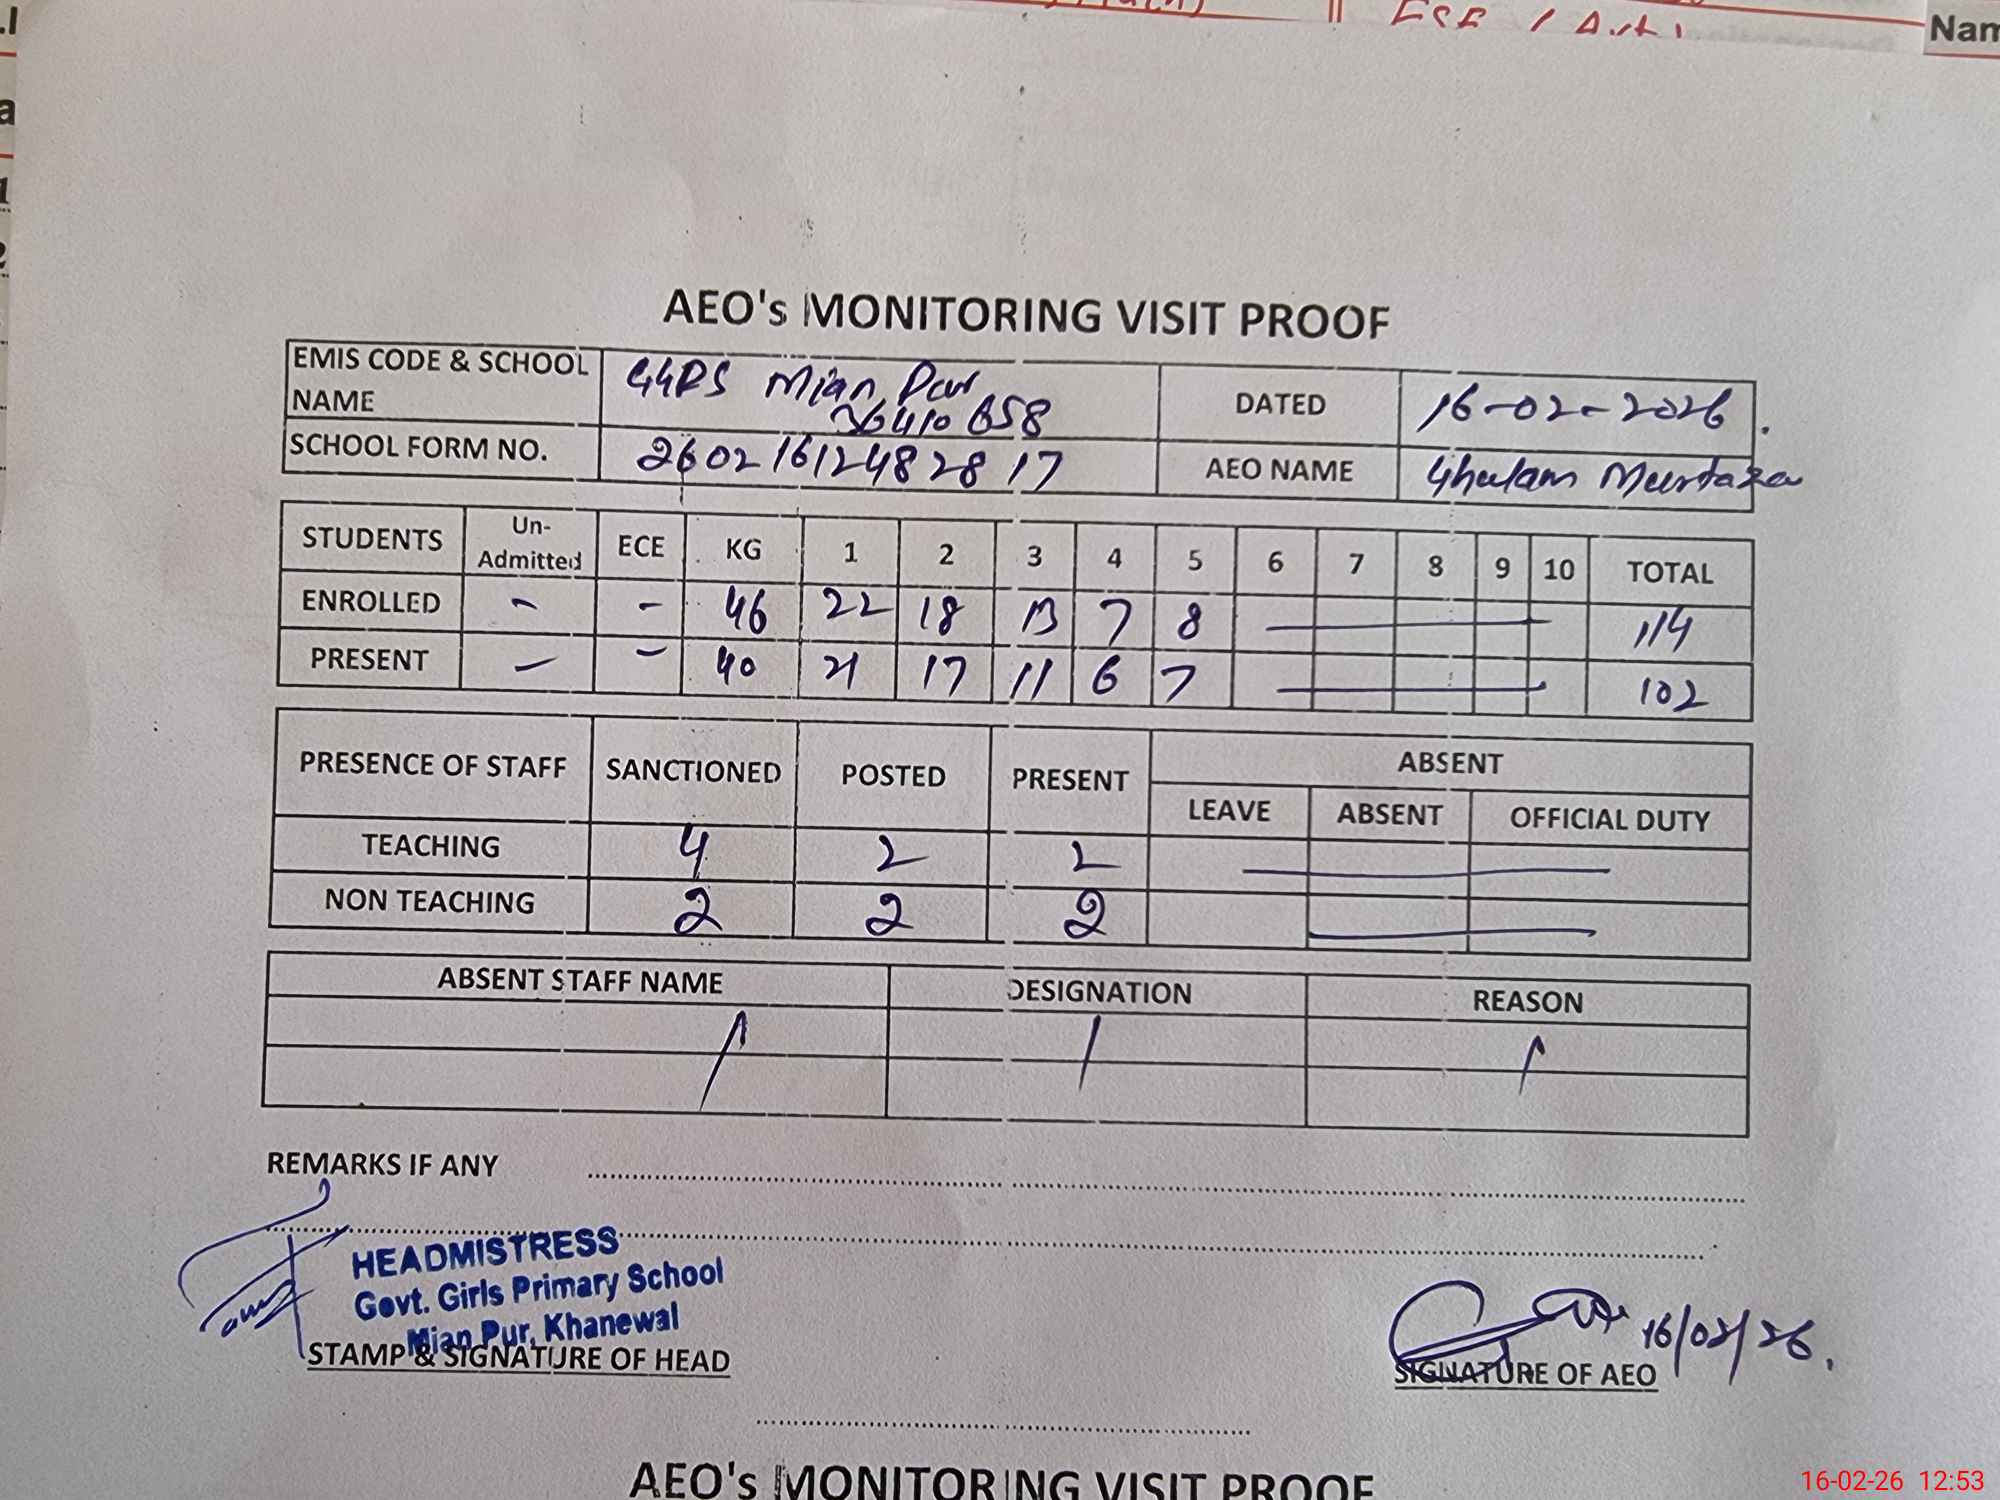 Nam
AEO's MONITORING VISIT PROOF
EMIS CODE & SCHOOL NAME GGPS Mian Pur 36410658 DATED 16-02-2026.
SCHOOL FORM NO. 260216124828 17 AEO NAME Ghulam Murtaza
STUDENTS Un-Admitted ECE KG 1 2 3 4 5 6 7 8 9 10 TOTAL
ENROLLED - - 46 22 18 13 7 8 114
PRESENT - - 40 21 17 11 6 7 102
PRESENCE OF STAFF SANCTIONED POSTED PRESENT ABSENT
LEAVE ABSENT OFFICIAL DUTY
TEACHING 4 2 2
NON TEACHING 2 2 2
ABSENT STAFF NAME DESIGNATION REASON
REMARKS IF ANY
HEADMISTRESS
Govt. Girls Primary School
Mian Pur, Khanewal
STAMP & SIGNATURE OF HEAD
16/02/26.
SIGNATURE OF AEO
AEO's MONITORING VISIT PROOF
16-02-26 12:53